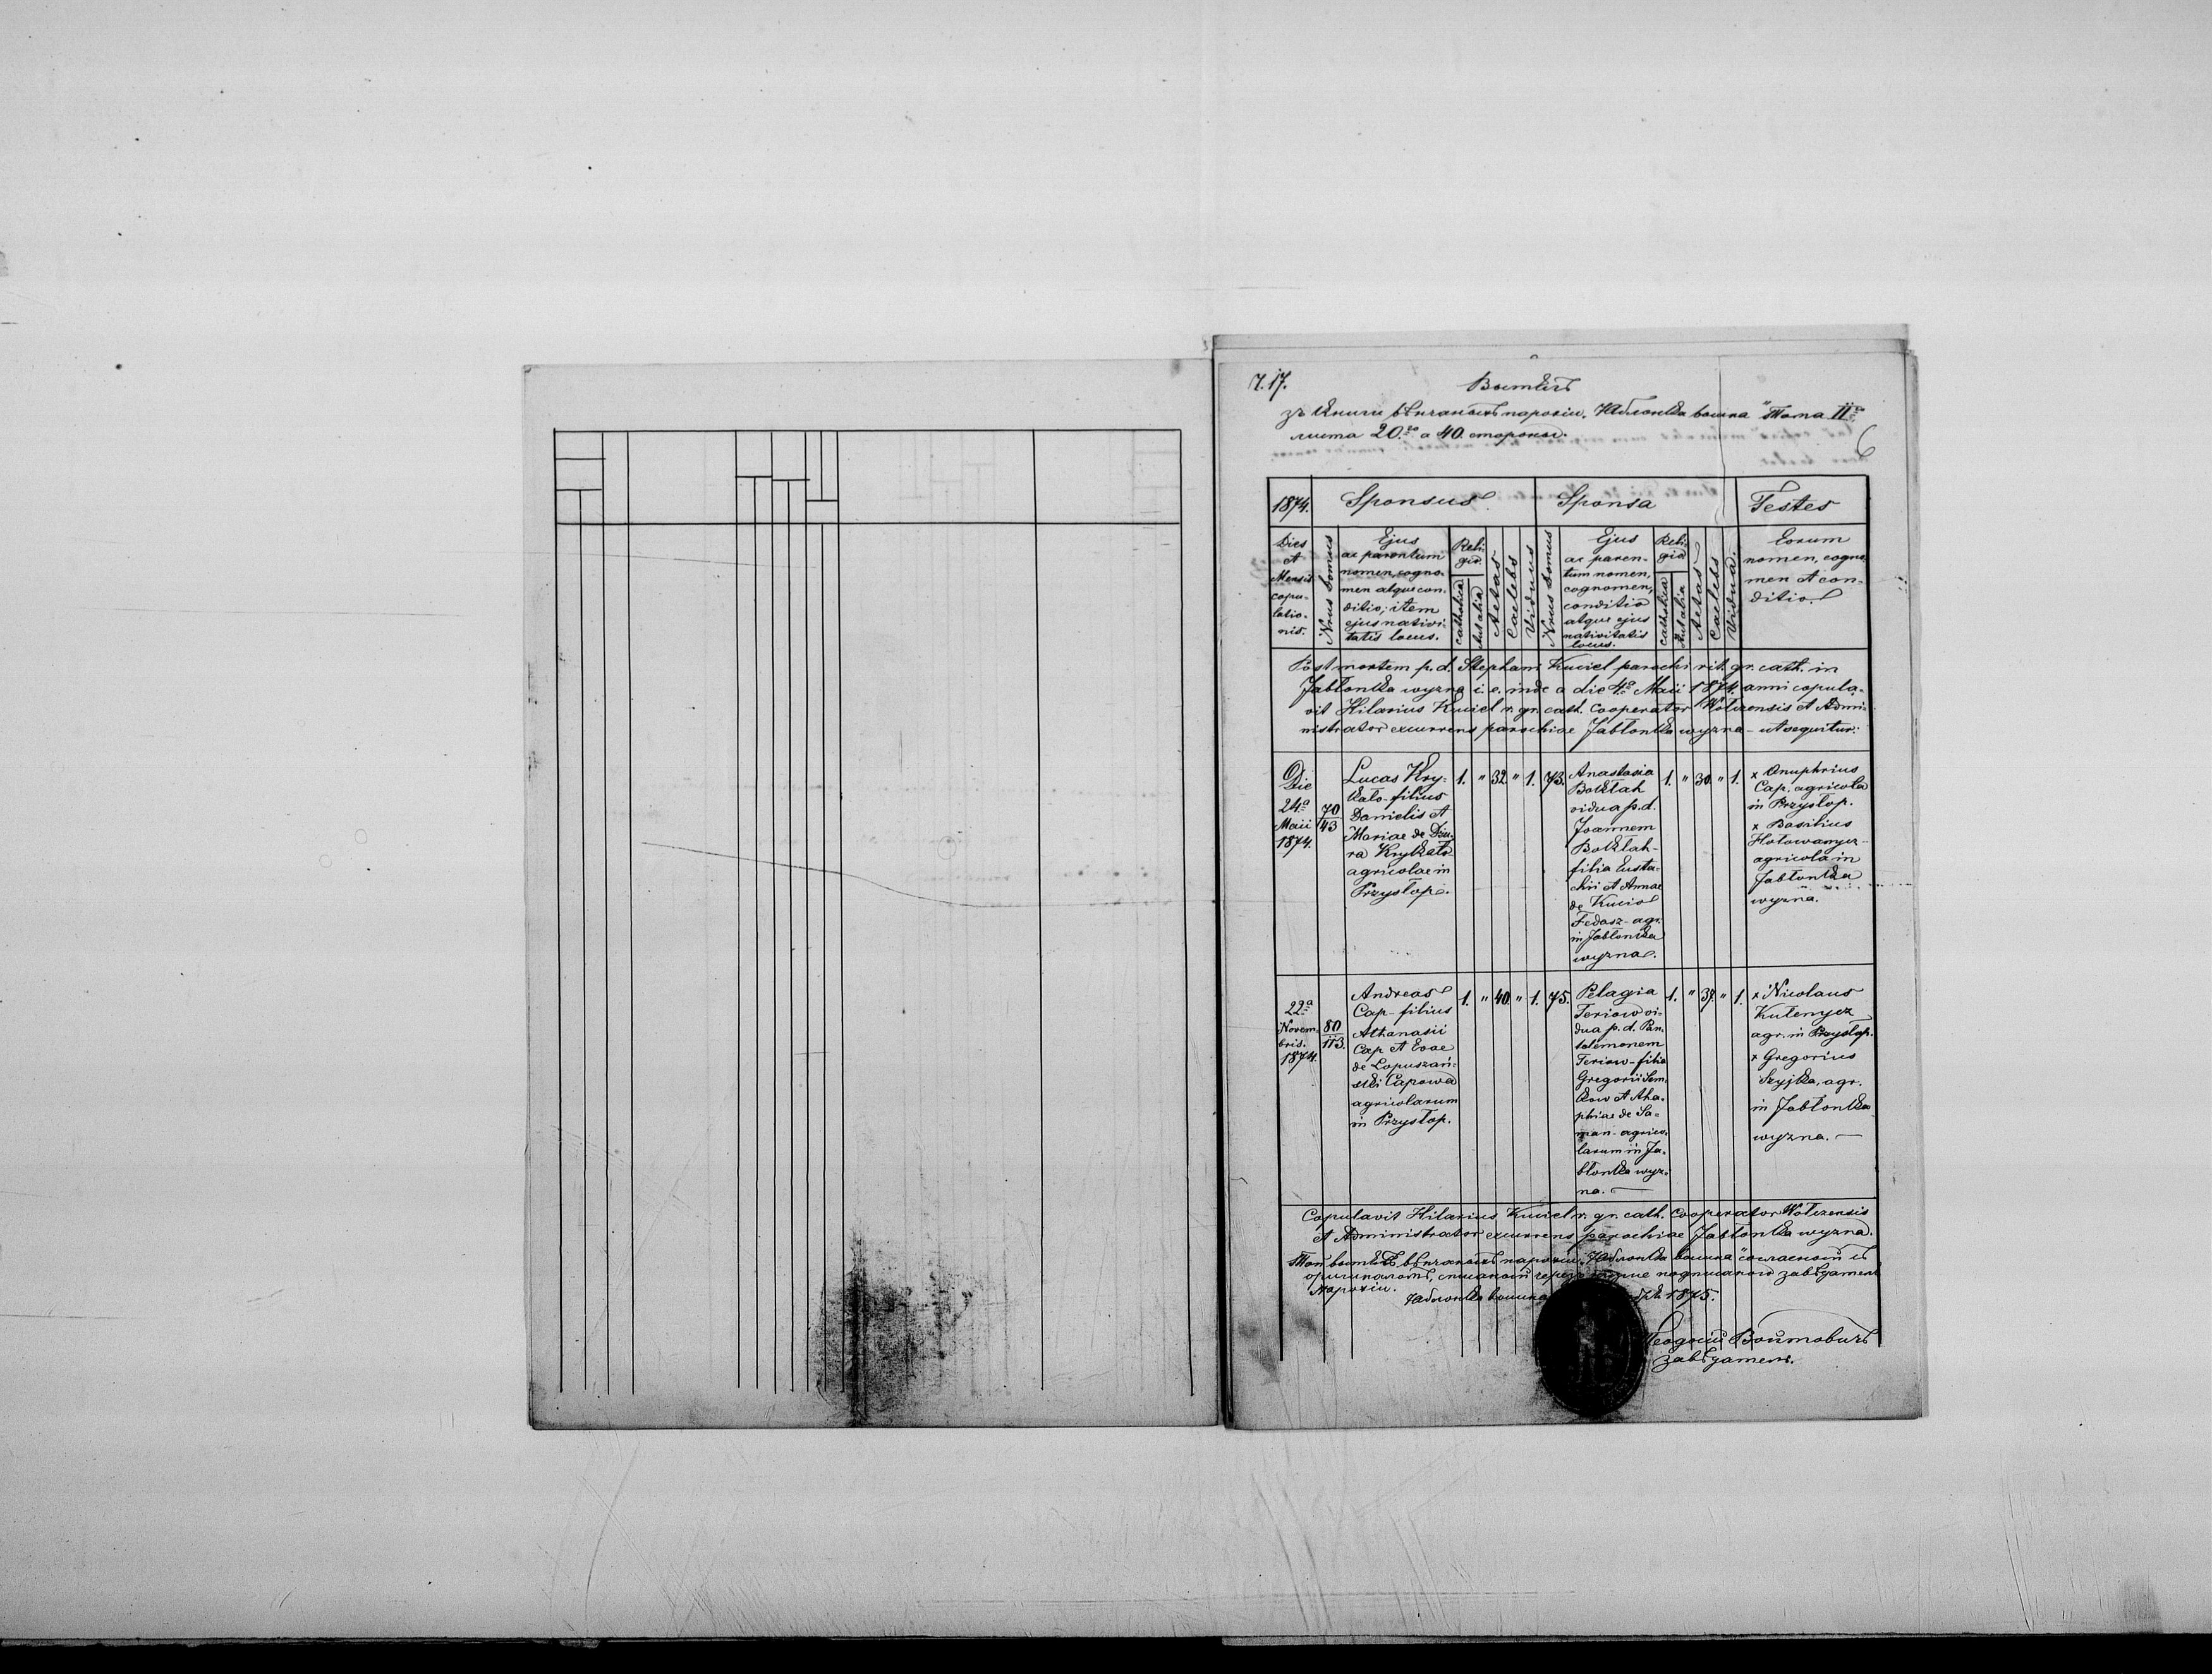 Ч. 17.
Вытягъ
зъ книги вѣнчаныхъ парохіи „Яблонка вышна" Тома II
листа 20.го а 40. стороны.
6
1874. Sponsus Sponsa Testes
Dies
et
Mensis
copu-
latio-
nis.
Nrus Domus
Ejus
ac parentum
nomen, cogno-
men atque con-
ditio, item
ejus nativi-
tatis locus.
Reli-
gio
catholica
Aut alia
Aetas
Caelebs
Viduus
Nrus Domus
Ejus
ac paren-
tum nomen,
cognomen,
conditio
atque ejus
nativitatis
locus.
Reli-
gio
catholica
Aut alia
Aetas
Caelebs
Vidua.
Eorum
nomen, cogno-
men et con-
ditio.
Post mortem p. d. Stephani Kuciel parochi rit. gr. cath. in
Jabłonka wyzna i. e. inde a die 4. Maii 1874. anni copula-
vit Hilarius Kuciel r. gr. cath. Cooperator Wołczensis et Admi-
nistrator excurrens parochiae Jabłonka wyzna – ut sequitur:
Die
24a
Maii
1874.
70
43
Lucas Kry-
kało – filius
Danielis et
Mariae de Dzu-
ra Krykało
agricolae in
Przysłop.
1. " 32 " 1. 73.
Anastasia
Bołktah
vidua p. d.
Joannem
Bołktah –
filia Eusta-
chii et Annae
de Kuciel
Fedasz – agr.
in Jabłonka
wyzna.
1. " 30. " 1.
x Onuphrius
Cap. agricola
in Przysłop.
x Basilius
Hołowanycz –
agricola in
Jabłonka
wyzna.
22a
Novem-
bris.
1874.
80
113.
Andreas
Cap – filius
Athanasii
Cap et Evae
de Łopuszań-
ski Capowa
agricolarum
in Przysłop.
1. " 40. " 1. 75.
Pelagia
Feriow vi-
dua p. d. Pan-
talemonem
Feriow – filia
Gregorii Sem-
kow et Aha-
phiae de Sa-
man – agrico-
larum in Ja-
błonka wyz-
na. –
1. " 39. " 1.
x Nicolaus
Kutenycz
agr. in Przysłop.
x Gregorius
Szyjka, agr.
in Jabłonka
wyzna. –
Copulavit Hilarius Kuciel r. gr. cath. Cooperator Wołczensis
et Administrator excurrens parochiae Jabłonka wyzna.
Той вытягъ вѣнчаныхъ парохіи „Яблонка вышна" согласный съ
оригиналомъ, списаный черезъ подписаного завѣдателя
парохіи.
Яблонка вышна 1875.
Теодосій Войтовичъ
завѣдатель.